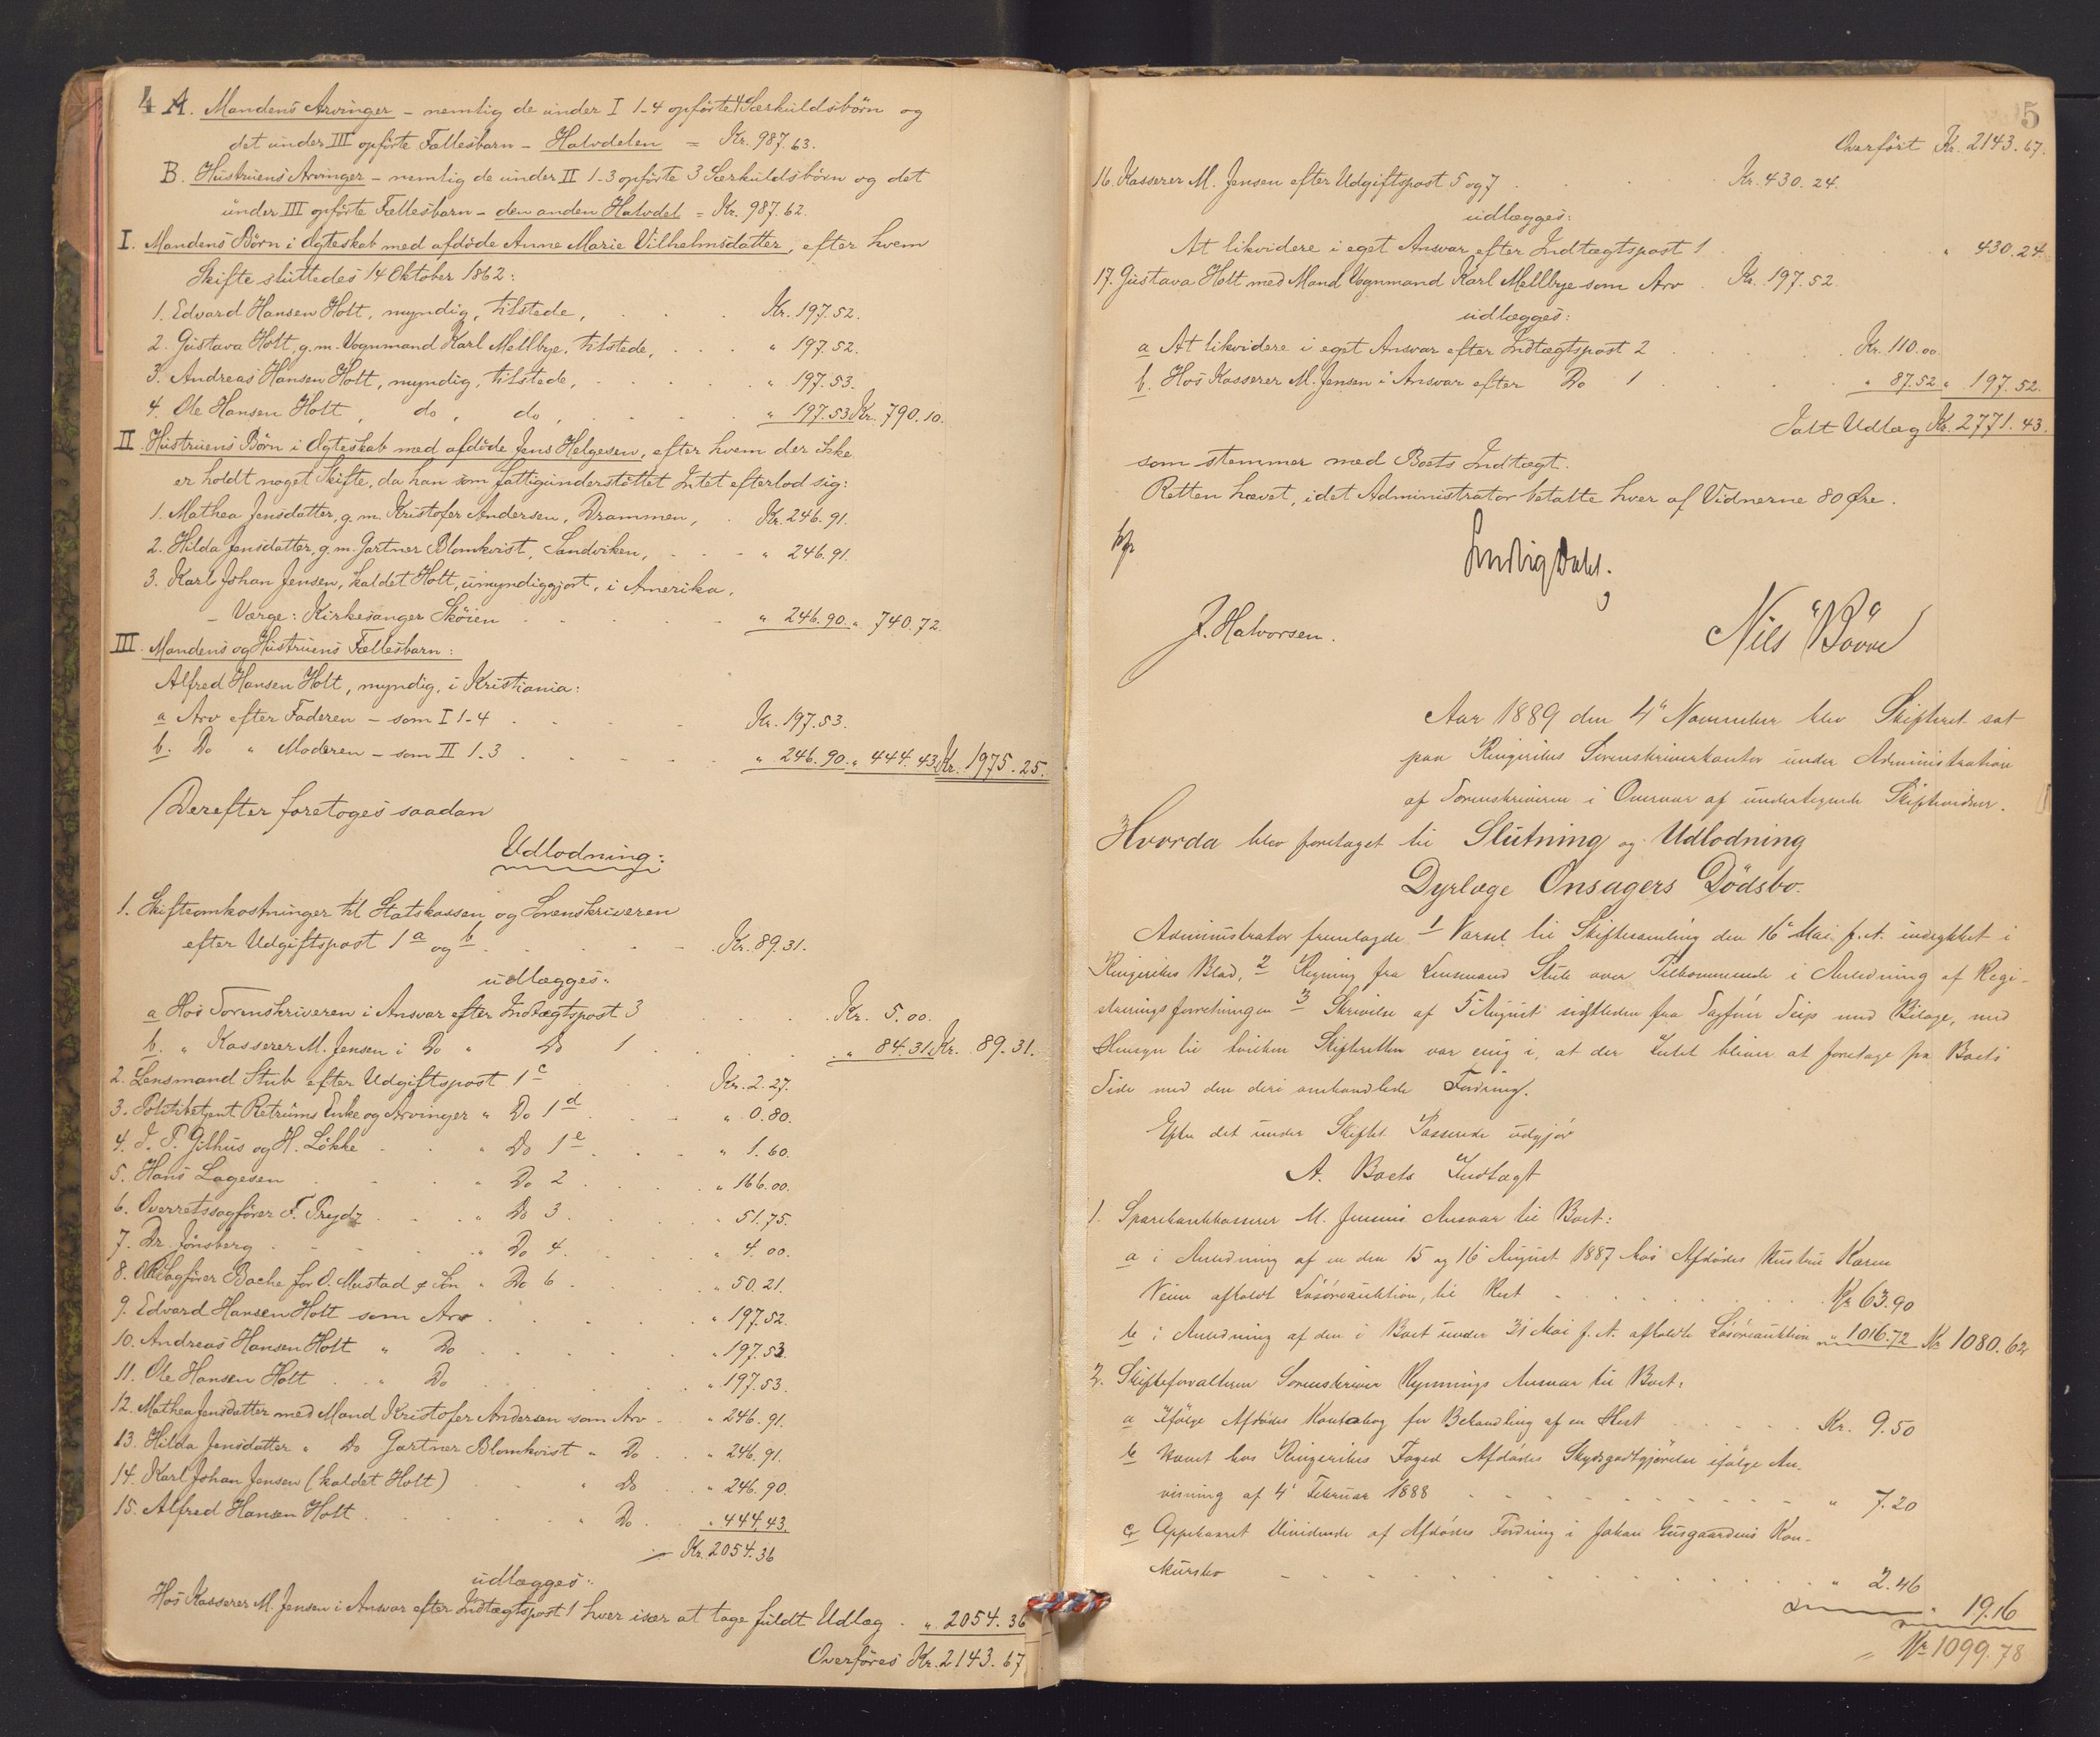 4 A. Mandens Arvinger – nemlig de under I 1-4 opförte 4 Særkuldsbörn og
det under III opförte Fællesbarn – Halvdelen = Kr. 987.63.
B. Hustruens Arvinger – nemlig de under II 1-3 opförte 3 Særkuldsbörn og det
under III opförte Fællesbarn – den anden Halvdel = Kr. 987.62.
I. Mandens Börn i Ægteskab med afdöde Anne Marie Vilhelmsdatter, efter hvem
Skifte sluttedes 14 Oktober 1862:
1. Edvard Hansen Holt, myndig, tilstede, . . . Kr. 197.52.
2. Gustava Holt, g. m. Vognmand Karl Mellbye, tilstede, . . . " 197.52.
3. Andreas Hansen Holt, myndig, tilstede, . . . " 197.53.
4. Ole Hansen Holt, do, do, . . . " 197.53 Kr. 790.10.
II. Hustruens Börn i Ægteskab med afdöde Jens Helgesen, efter hvem der ikke
er holdt noget Skifte, da han som fattigunderstöttet Intet efterlod sig:
1. Mathea Jensdatter, g. m. Kristofer Andersen, Drammen, . Kr. 246.91.
2. Hilda Jensdatter, g. m. Gartner Blomkvist, Sandviken, . . . " 246.91.
3. Karl Johan Jensen, kaldet Holt, umyndiggjort, i Amerika,
– Værge: Kirkesanger Sköien . . . " 246.90. " 740.72.
III. Mandens og Hustruens Fællesbarn:
Alfred Hansen Holt, myndig, i Kristiania:
a Arv efter Faderen – som I 1-4 . . . Kr. 197.53.
b. Do " Moderen – som II 1-3 . . . " 246.90. " 444.43 Kr. 1975.25.
Derefter foretoges saadan
Udlodning:
1. Skifteomkostninger til Statskassen og Sorenskriveren
efter Udgiftspost 1 a og b . . . Kr. 89.31.
udlægges:
a Hos Sorenskriveren i Ansvar efter Indtægtspost 3 . . . Kr. 5.00.
b. " Kasserer M. Jensen i Do " Do 1 . . . " 84.31 Kr. 89.31.
2. Lensmand Stub efter Udgiftspost 1 c . . . Kr. 2.27.
3. Politibetjent Retrums Enke og Arvinger " Do 1 d . . . " 0.80.
4. J. P. Gilhus og H. Lökke . . " Do 1 e . . . " 1.60.
5. Hans Lagesen . . . " Do 2 . . . " 166.00.
6. Overretssagförer F. Prydz . . . " Do 3 . . . " 51.75.
7. Dr. Jönsberg . . . " Do 4 . . . " 4.00.
8. ORSagförer Bache for O. Mustad & Sön " Do 6 . . . " 50.21.
9. Edvard Hansen Holt som Arv . . . " 197.52.
10. Andreas Hansen Holt " Do . . . " 197.53.
11. Ole Hansen Holt . . " Do . . . " 197.53.
12. Mathea Jensdatter med Mand Kristofer Andersen som Arv . . " 246.91.
13. Hilda Jensdatter " Do Gartner Blomkvist " Do . . " 246.91.
14. Karl Johan Jensen (kaldet Holt) . . . " Do . . " 246.90.
15. Alfred Hansen Holt . . . " Do . . " 444.43.
Kr. 2054.36
udlægges:
Hos Kasserer M. Jensen i Ansvar efter Indtægtspost 1 hver især at tage fuldt Udlæg . " 2054.36
Overföres Kr. 2143.67
5
Overfört Kr. 2143.67.
16. Kasserer M. Jensen efter Udgiftspost 5 og 7 . . . Kr. 430.24.
udlægges:
At likvidere i eget Ansvar efter Indtægtspost 1 . . . " 430.24.
17. Gustava Holt med Mand Vognmand Karl Mellbye som Arv . Kr. 197.52.
udlægges:
a At likvidere i eget Ansvar efter Indtægtspost 2 . . . Kr. 110.00
b. Hos Kasserer M. Jensen i Ansvar efter Do 1 . . . " 87.52 " 197.52.
Ialt Udlæg Kr. 2771.43.
som stemmer med Boets Indtægt.
Retten hævet, idet Administrator betalte hver af Vidnerne 80 Øre.
Ludvig Dahl.
J. Halvorsen.
Nils Böve
Aar 1889 den 4de November blev Skifteret sat
paa Ringerikes Sorenskriverkontor under Administration
af Sorenskriveren i Overvær af undertegnede Skiftevidner.
Hvorda blev foretaget til Slutning og Udlodning
Dyrlæge Onsagers Dödsbo.
Administrator fremlagde 1 Varsel til Skiftesamling den 16de Mai f. A. indrykket i
Ringerikes Blad, 2 Regning fra Lensmand Stub over Tilkommende i Anledning af Regi-
streringsforretningen 3 Skrivelse af 5 August sidstleden fra Sagförer Seip med Bilage, med
Hensyn til hvilken Skifteretten var enig i, at der Intet bliver at foretage fra Boets
Side med den deri omhandlede Fordring.
Efter det under Skiftet Passerede udgjör
A. Boets Indtægt
1. Sparebankkasserer M. Jensens Ansvar til Boet:
a i Anledning af en den 15 og 16 August 1887 hos Afdödes Hustru Karen
afholdt Lösöreauktion, til Rest . . . Kr 63.90
b i Anledning af den i Boet under 31 Mai f. A. afholdte Lösöreauktion " 1016.72 Kr 1080.62
2. Skifteforvalteren Sorenskriver Rynnings Ansvar til Boet:
a Ifölge Afdödes Kontrabog for Behandling af en Hest . . . Kr. 9.50
b Hævet hos Ringerikes Foged Afdödes Skydsgodtgjörelse ifölge An-
visning af 4de Februar 1888 . . . " 7.20
c Oppebaaret Dividende af Afdödes Fordring i Johan Gusgaardens Kon-
kursbo . . . " 2.46
" 19.16
= Kr 1099.78